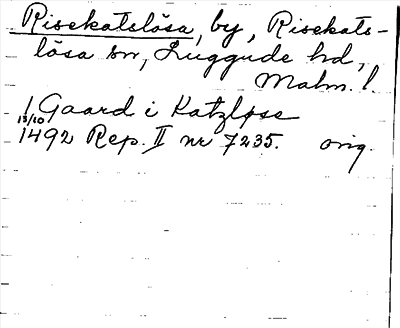 Risekatslösa, by, Risekats-
lösa sn, Luggude hd,
Malm. l.
1 Gaard i Katzløse
13/10
1492 Rep. II nr 7235. orig.